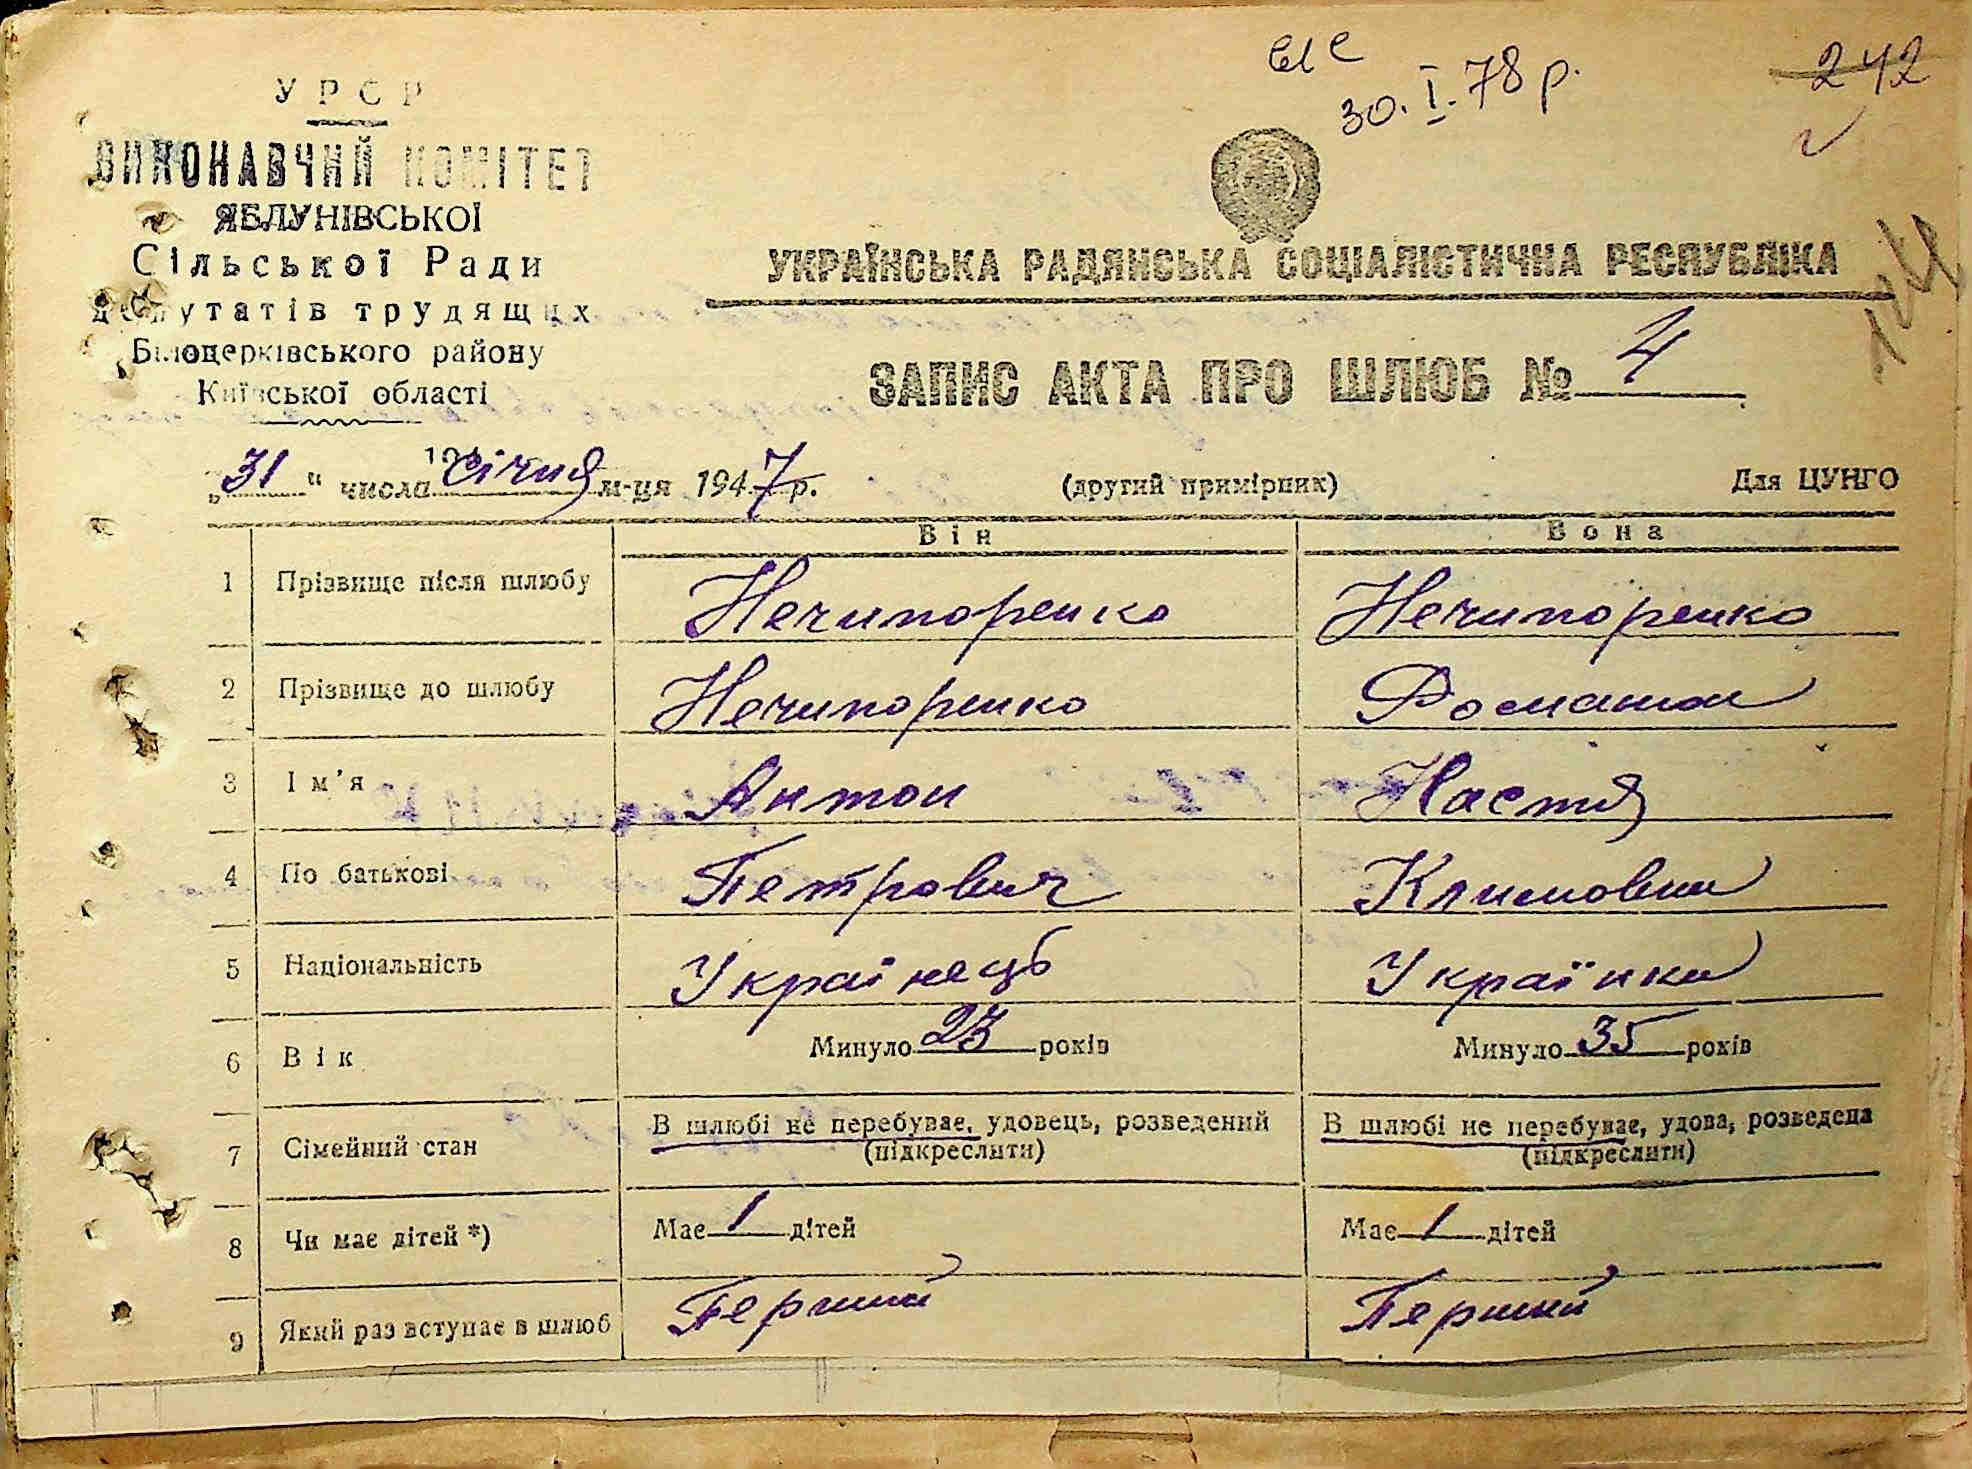 30. I. 78 р.
242
У Р С Р
ВИКОНАВЧИЙ КОМІТЕТ
ЯБЛУНІВСЬКОЇ
Сільської Ради
депутатів трудящих
Білоцерківського району
Київської області
УКРАЇНСЬКА РАДЯНСЬКА СОЦІАЛІСТИЧНА РЕСПУБЛІКА
ЗАПИС АКТА ПРО ШЛЮБ № 4
„31“ числа січня м-ця 1947 р. (другий примірник) Для ЦУНГО
Він Вона
1 Прізвище після шлюбу Нечипоренко Нечипоренко
2 Прізвище до шлюбу Нечипоренко
3 Ім'я Антон Настя
4 По батькові Петрович Климовна
5 Національність Українець Українка
6 Вік Минуло 23 років Минуло 35 років
7 Сімейний стан В шлюбі не перебуває, удовець, розведений В шлюбі не перебуває, удова, розведена
(підкреслити) (підкреслити)
8 Чи має дітей *) Має 1 дітей Має 1 дітей
9 Який раз вступає в шлюб Перший Перший